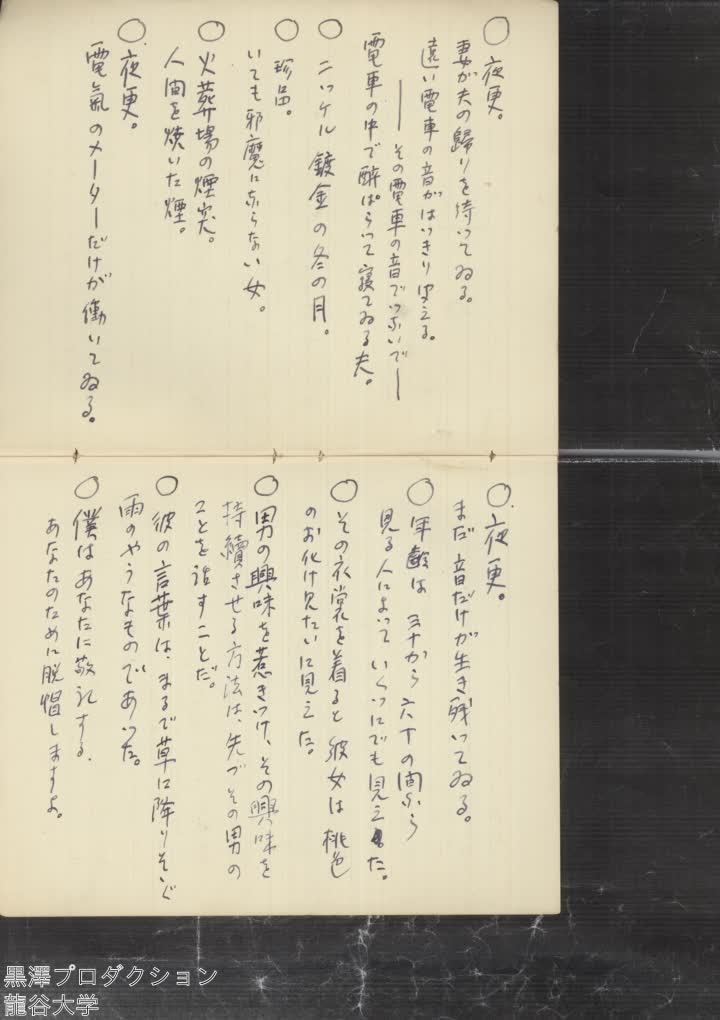 ○夜更。
妻が夫の歸りを待ってゐる。
遠い電車の音がはっきり聞える。
――その電車の音でつないで――
電車の中で醉ぱらって寝てゐる夫。
○ニッケル鍍金の冬の月。
○珍品。
いても邪魔にならない女。
○火葬場の煙突。
人間を焼いた煙。
○夜更。
電氣のメーターだけが働いてゐる。
○夜更。
まだ音だけが生き残ってゐる。
○年齢は三十から六十の間なら
見る人によっていくつにでも見えた。
○その衣裳を着ると彼女は桃色
のお化け見たいに見えた。
○男の興味を惹きつけ、その興味を
持續させる方法は、先づその男の
ことを話すことだ。
○彼の言葉は、まるで草に降りそゝぐ
雨のやうなものであった。
○僕はあなたに敬礼する、
あなたのために脱帽しますよ。
黒澤プロダクション
龍谷大学